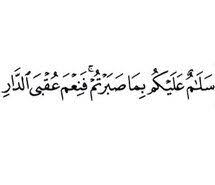 سَلَٰمٌ عَلَيْكُم بِمَا صَبَرْتُمْ ۚ فَنِعْمَ عُقْبَى ٱلدَّارِ